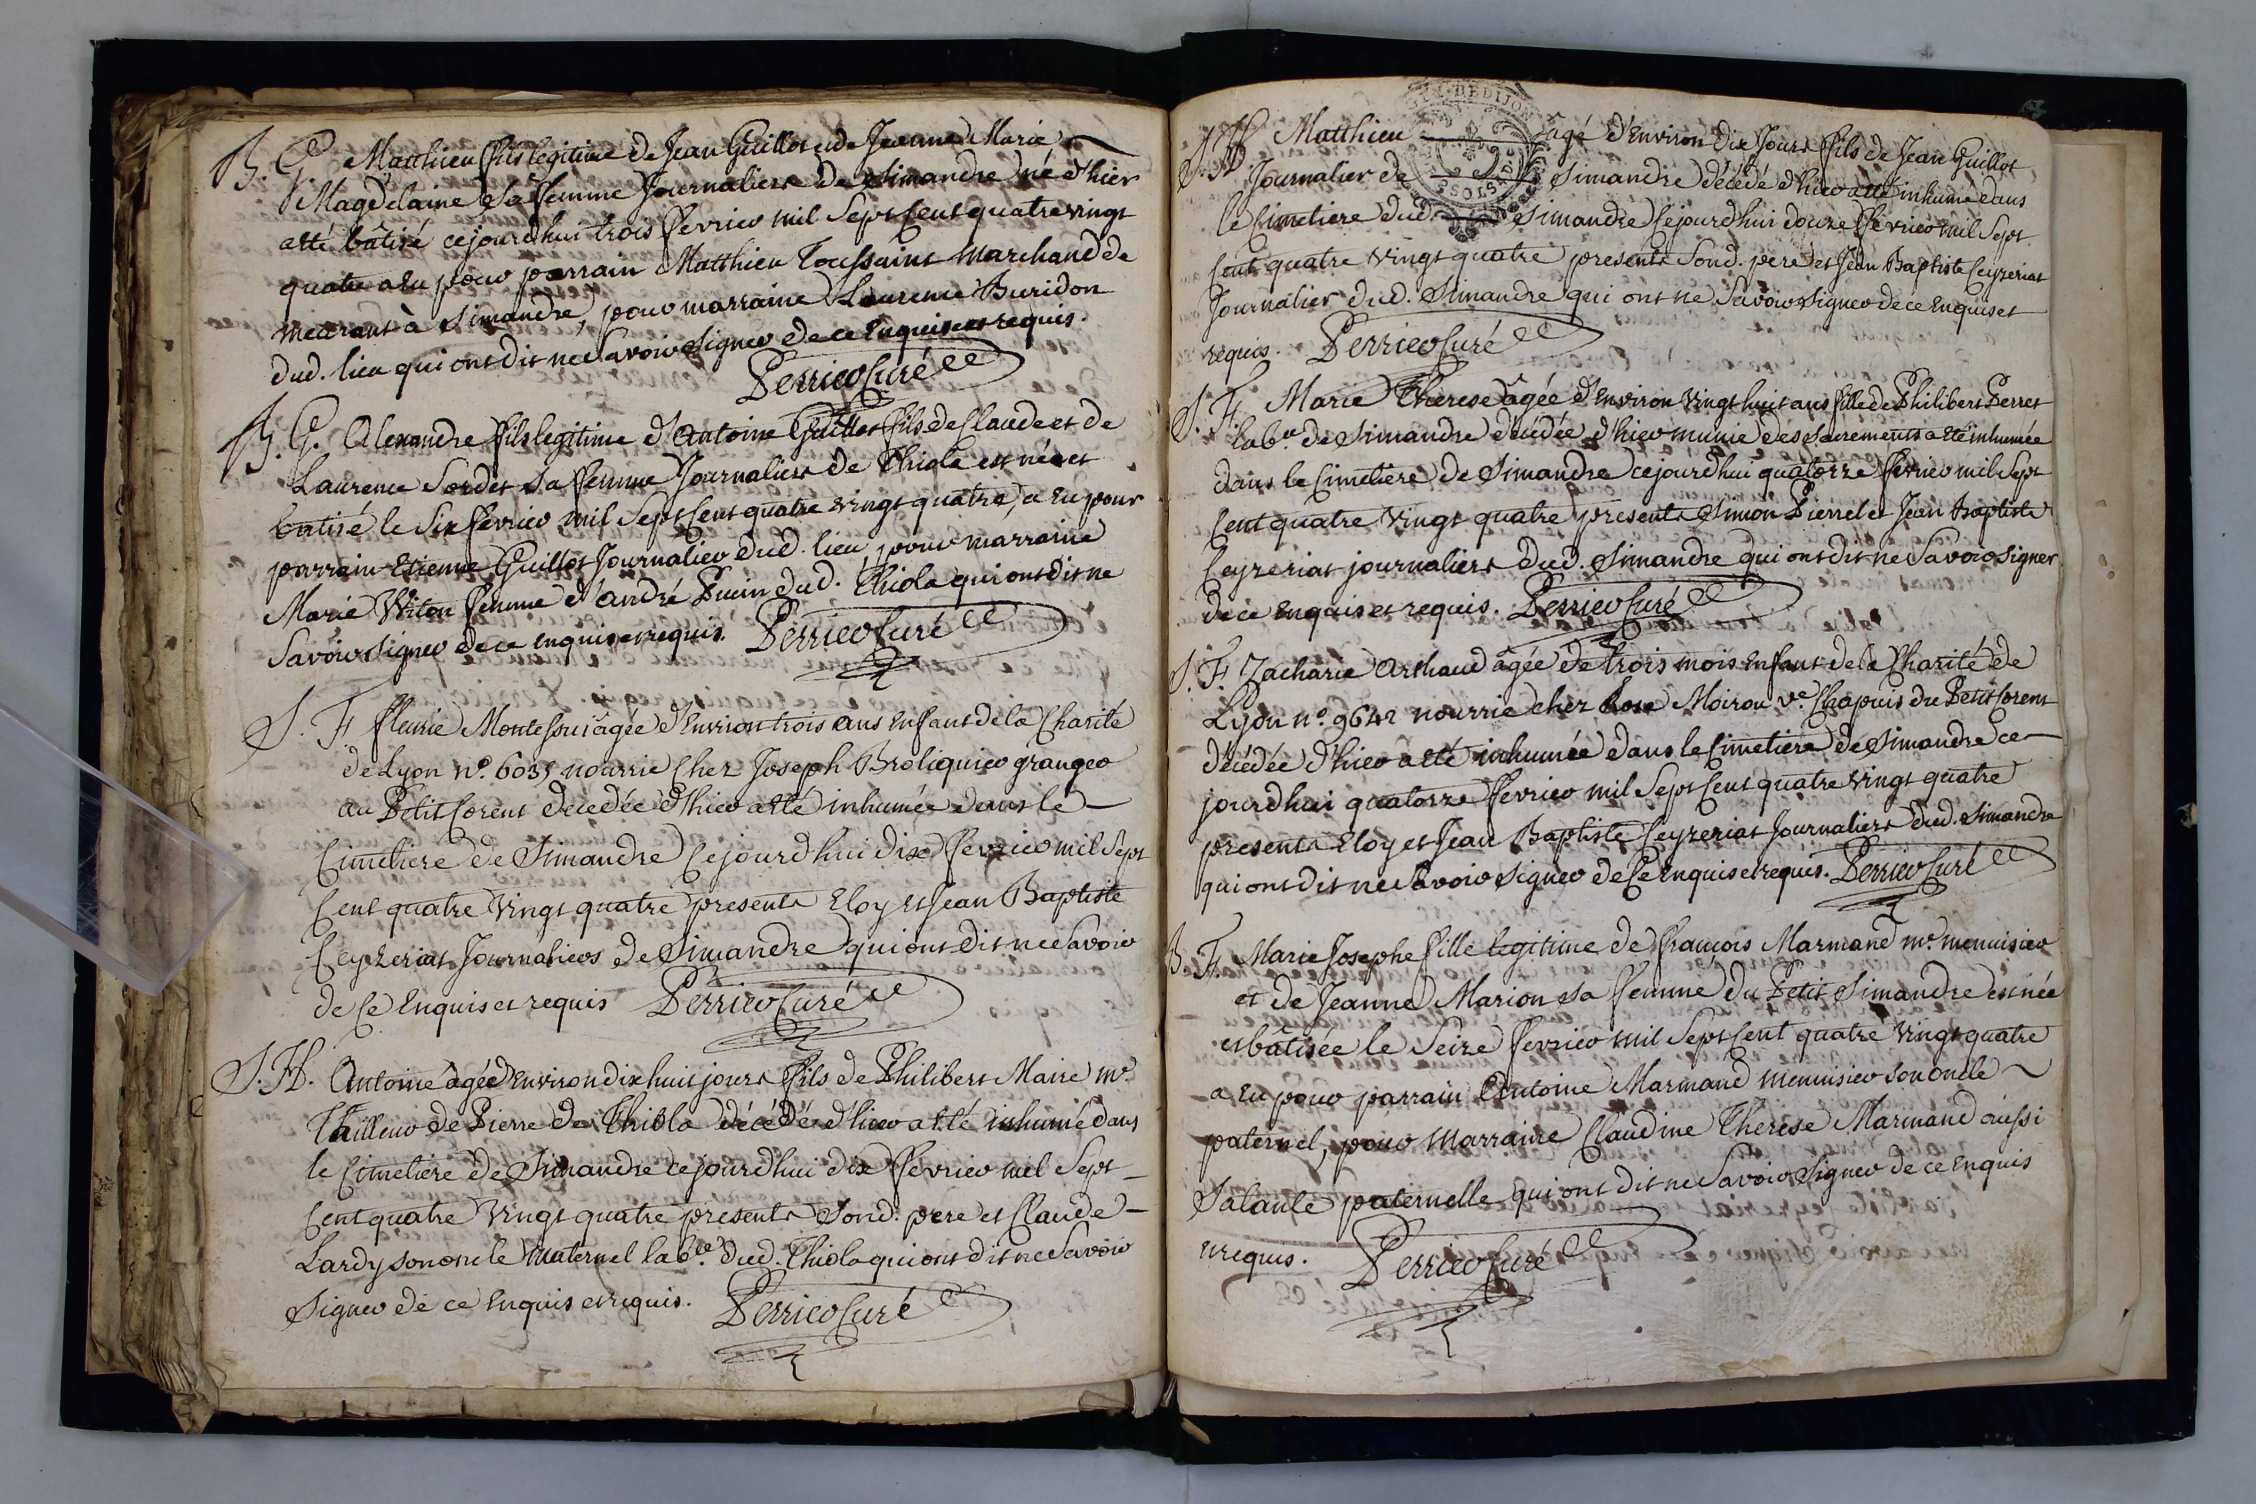 B. G. Matthieu fils legitime de Jean Guillot et de Jeanne Marie
Magdelaine sa femme Journaliers de Simandre né d'hier
a eté bâtisé cejourdhui trois fevrier mil Sept Cent quatre vingt
quatre a Eu pour parrain Matthieu Toussaint marchand de
meurant à Simandre, pour marraine Laurence Buridon
dud. lieu qui ont dit ne Savoir Signer de ce Enquis et requis.
Perrier Curé
B. G. Alexandre fils legitime d'Antoine Guillot fils de Claude et de
Laurence Sordet sa femme Journaliers de Thiole est né et
batisé le Six fevrier mil Sept Cent quatre vingt quatre, a Eu pour
parrain Etienne Guillot Journalier dud. lieu pour marraine
Marie Viton femme d'andré Puin dud. Thiola qui ont dit ne
Savoir signer de ce enquis et requis. Perrier Curé
S. F. fleurie Montessui âgée d'Environ trois ans Enfant de la Charité
de Lyon N°. 6035 nourrie Chez Joseph Broliquier granger
au Petit Corent decedée d'hier a eté inhumée dans le
Cimetiere de Simandre Cejourdhui dix fevrier mil Sept
Cent quatre Vingt quatre presents Eloy et Jean Baptiste
Ceyzeriat Journaliers de Simandre qui ont dit ne Savoir
de Ce Enquis et requis Perrier Curé
S. H. Antoine âgé d'Environ dix huit jours fils de Philibert Maire me.
Tailleur de Pierre de Thiola décédé d'hier a eté inhumé dans
le Cimetiere de Simandre ce jourdhui dix fevrier mil Sept
Cent quatre Vingt quatre presents Sond. pere et Claude
Lardy son oncle maternel labr. dud. Thiola qui ont dit ne Savoir
Signer de ce Enquis et requis. Perrier Curé
S. H. Matthieu âgé d'Environ dix Jours fils de Jean Guillot
Journalier de Simandre décédé d'hier a eté inhumé dans
le Cimetiere dud. Simandre Cejourdhui douze fevrier mil Sept
Cent quatre Vingt quatre presents Sond. pere et Jean Baptiste Ceyzeriat
Journalier dud. Simandre qui ont ne Savoir Signer de ce Enquis et
requis. Perrier Curé
S. F. Marie Therese âgée d'Environ Vingt huit ans fille de Philibert Perret
labr. de Simandre decédée d'hier munie des sacrements a eté inhumée
dans le Cimetiere de Simandre cejourdhui quatorze fevrier mil Sept
Cent quatre Vingt quatre presents Simon Pierrel et Jean Baptiste
Ceyzeriat journaliers dud. Simandre qui ont dit ne Savoir Signer
de ce enquis et requis. Perrier Curé
S. F. Zacharie Arthaud âgée de trois mois Enfant de la Charité de
Lyon n°. 9642 nourrie chez Rose Moiron ve. Chapuis du Petit Corent
décédée d'hier a eté inhumée dans le Cimetiere de Simandre ce
jourdhui quatorze fevrier mil Sept Cent quatre Vingt quatre
presents Eloy et Jean Baptiste Ceyzeriat Journaliers dud. Simandre
qui ont dit ne Savoir Signer de Ce Enquis et requis. Perrier Curé
B. F. Marie Josephe fille legitime de françois Marmand me. menuisier
et de Jeanne Marion sa femme du Petit Simandre est née
et bâtisée le Seize fevrier mil Sept Cent quatre Vingt quatre
a Eu pour parrain Antoine Marmand menuisier son oncle
paternel, pour Marraine Claudine Therese Marmand aussi
Sa tante paternelle qui ont dit ne Savoir Signer de ce enquis
et requis. Perrier Curé